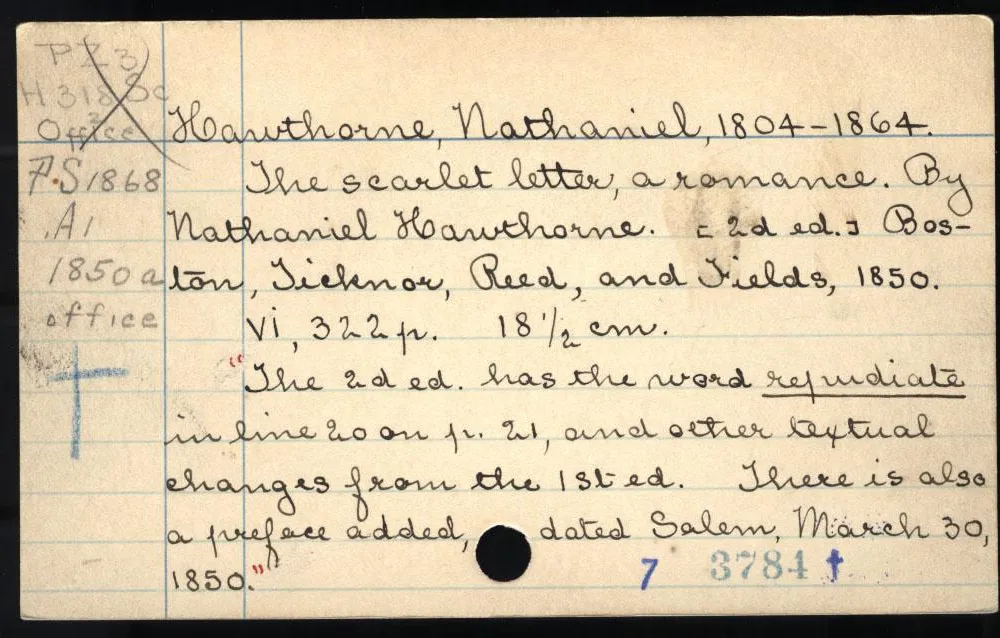 PZ3
H318Sc
Office
P.S1868
.A1
1850a
office
Hawthorne, Nathaniel, 1804-1864.
The scarlet letter, a romance. By
Nathaniel Hawthorne. [2d ed.] Bos-
ton, Ticknor, Reed, and Fields, 1850.
vi, 322 p. 18 1/2 cm.
"The 2d ed. has the word repudiate
in line 20 on p. 21, and other textual
changes from the 1st ed. There is also
a preface added, dated Salem, March 30,
1850."
7 3784 †